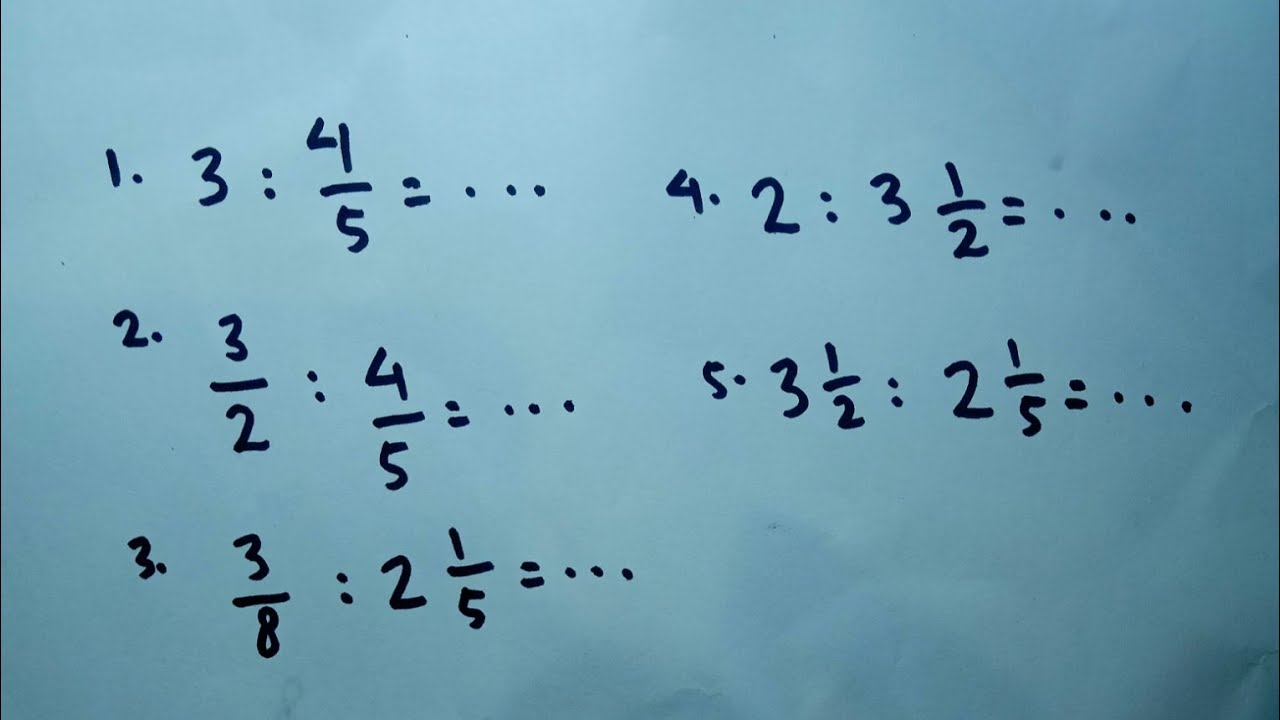 1. 3 : 4/5 = ...
2. 3/2 : 4/5 = ...
3. 3/8 : 2 1/5 = ...
4. 2 : 3 1/2 = ...
5. 3 1/2 : 2 1/5 = ...